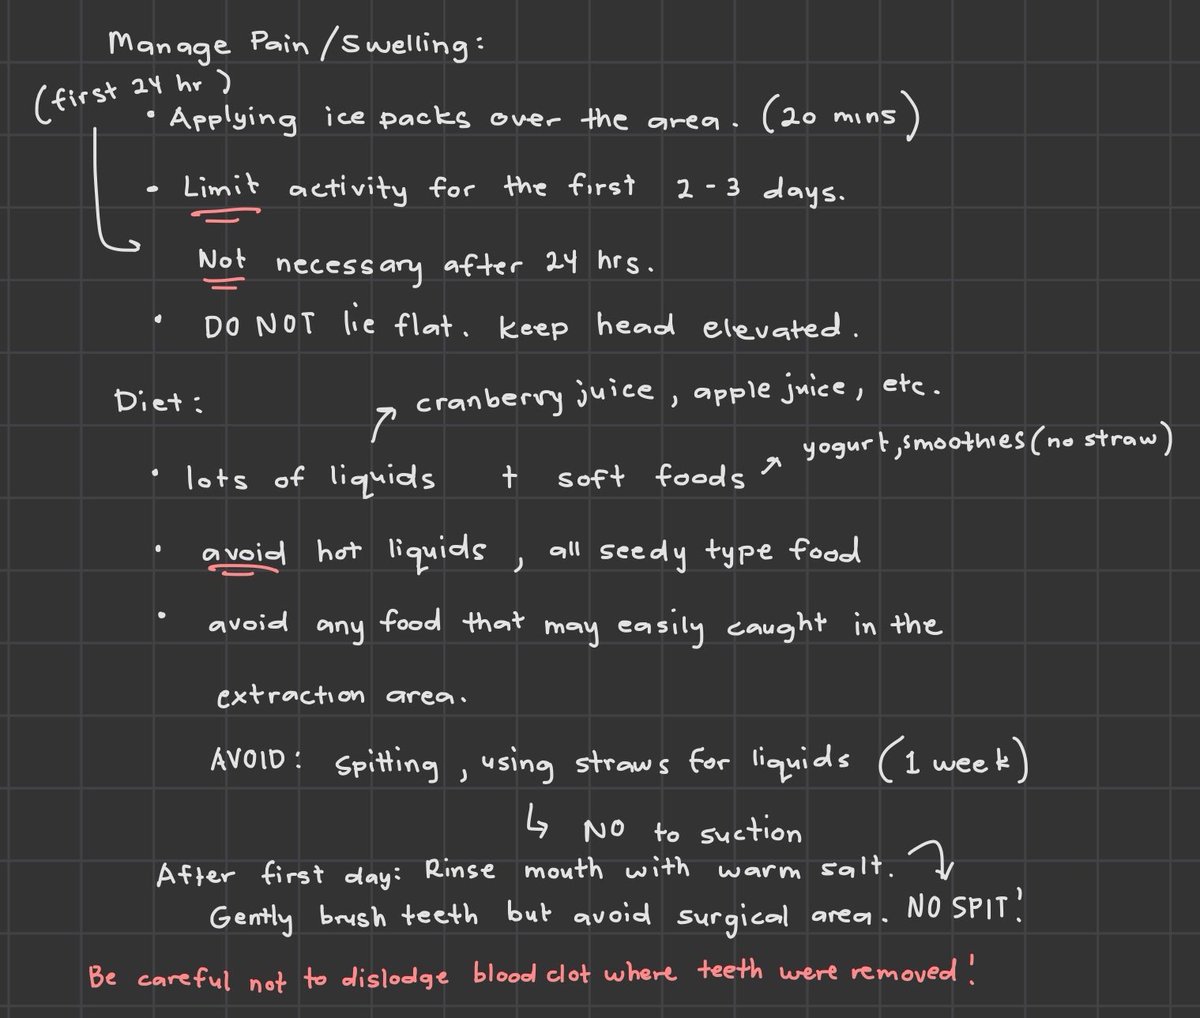 Manage Pain/Swelling:
(first 24 hr)
• Applying ice packs over the area. (20 mins)
• Limit activity for the first 2-3 days.
Not necessary after 24 hrs.
• DO NOT lie flat. Keep head elevated.
Diet:
cranberry juice, apple juice, etc.
yogurt, smoothies (no straw)
• lots of liquids + soft foods
• avoid hot liquids, all seedy type food
• avoid any food that may easily caught in the
extraction area.
AVOID: Spitting, using straws for liquids (1 week)
↳ NO to suction
After first day: Rinse mouth with warm salt.
Gently brush teeth but avoid surgical area. NO SPIT!
Be careful not to dislodge blood clot where teeth were removed!